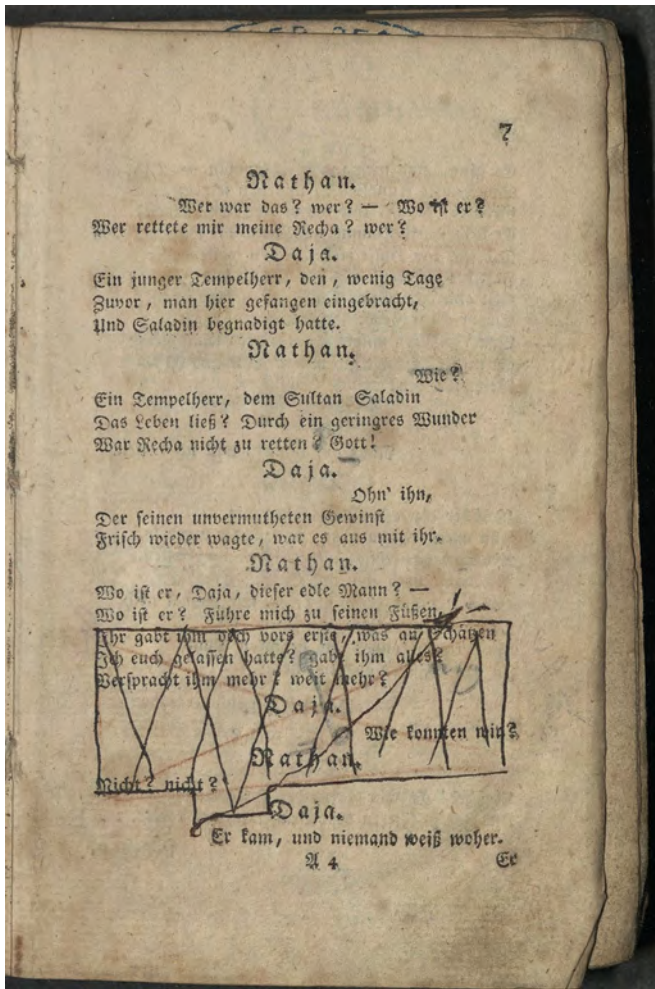 7
Nathan.
Wer war das? wer? — Wo ist er?
Wer rettete mir meine Recha? wer?
Daja.
Ein junger Tempelherr, den, wenig Tage
Zuvor, man hier gefangen eingebracht,
Und Saladin begnadigt hatte.
Nathan.
Wie?
Ein Tempelherr, dem Sultan Saladin
Das Leben ließ? Durch ein geringres Wunder
War Recha nicht zu retten? Gott!
Daja.
Ohn' ihn,
Der seinen unvermutheten Gewinst
Frisch wieder wagte, war es aus mit ihr.
Nathan.
Wo ist er, Daja, dieser edle Mann? —
Wo ist er? Führe mich zu seinen Füßen.
Ihr gabt ihm doch vors erste, was an Schätzen
Ich euch gelassen hatte? gabt ihm alles?
Verspracht ihm mehr? weit mehr?
Daja.
Wie konnten wir?
Nathan.
Nicht? nicht?
Daja.
Er kam, und niemand weiß woher.
A 4 Er